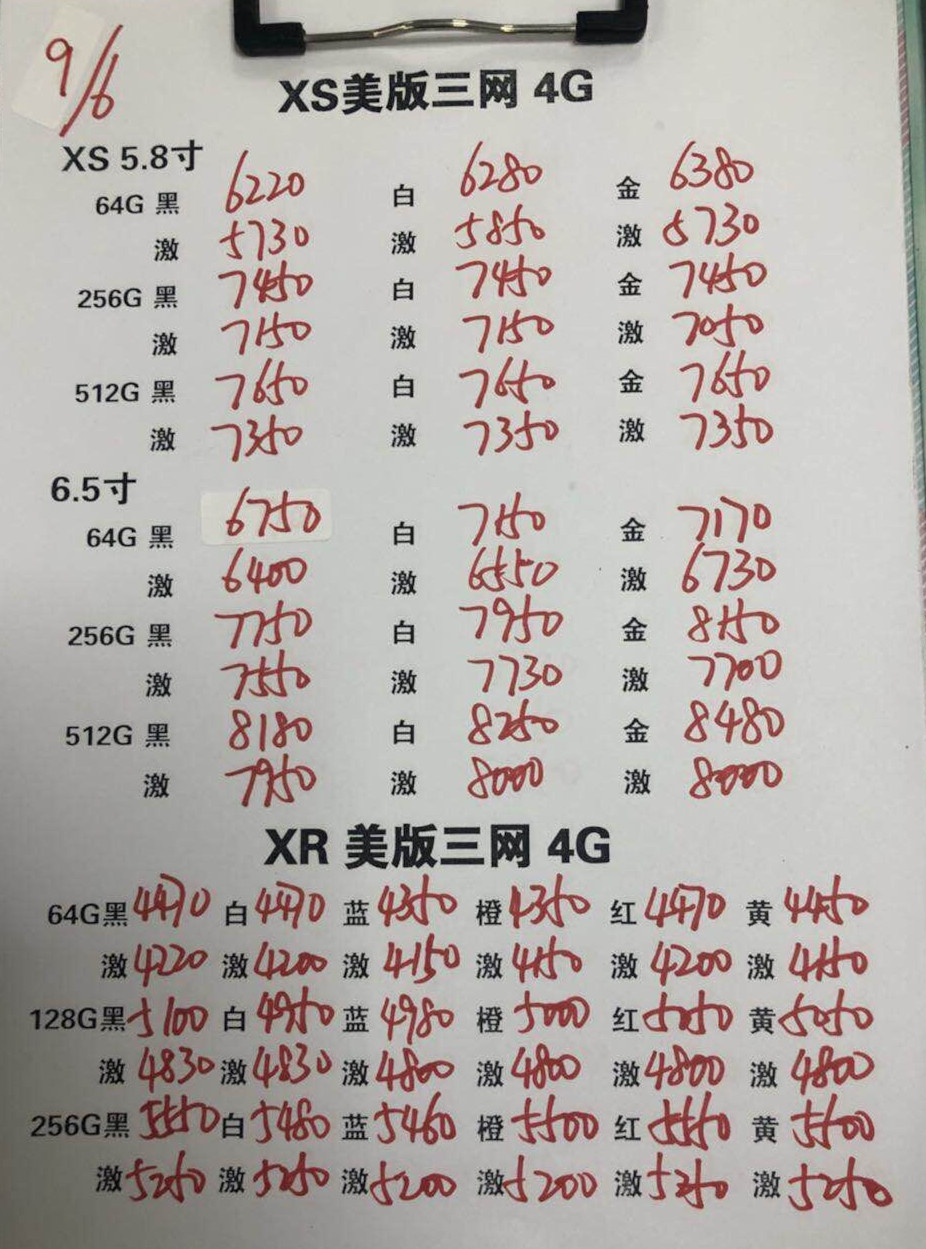 9/6
XS美版三网 4G
XS 5.8寸
64G 黑 6220 白 6280 金 6380
激 5730 激 5850 激 5730
256G 黑 7450 白 7450 金 7450
激 7150 激 7150 激 7050
512G 黑 7650 白 7650 金 7650
激 7350 激 7350 激 7350
6.5寸
64G 黑 6750 白 7150 金 7170
激 6400 激 6550 激 6730
256G 黑 7750 白 7950 金 8150
激 7550 激 7730 激 7700
512G 黑 8180 白 8250 金 8480
激 7950 激 8000 激 8000
XR 美版三网 4G
64G黑 4470 白 4470 蓝 4350 橙 4350 红 4470 黄 4450
激 4220 激 4200 激 4150 激 4150 激 4200 激 4150
128G黑 5100 白 4950 蓝 4980 橙 5000 红 5050 黄 5050
激 4830 激 4830 激 4800 激 4800 激 4800 激 4800
256G黑 5550 白 5480 蓝 5460 橙 5500 红 5550 黄 5500
激 5250 激 5250 激 5200 激 5200 激 5250 激 5250